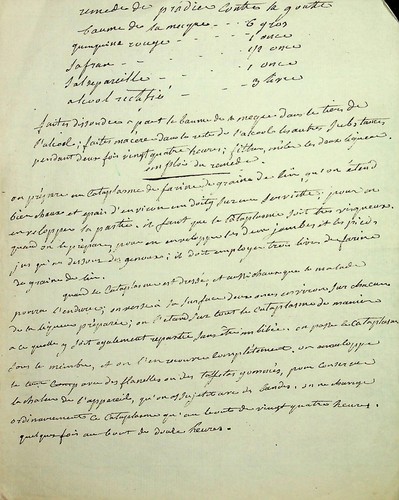 remede de pradier contre la goutte
baume de la mecque - - - 6 gros
quinquina rouge - - - 1 once
safran - - - 1/2 once
salsepareille - - - 1 once
alcool rectifié - - - 3 livre
faites dissoudre a part le baume de la mecque dans le tiers de
l'alcool; faites macérer dans le reste de l'alcool les autres substances
pendant deux fois vingt quatre heures; filtrez, mêlez les deux liqueurs.
emplois du remede.
on prépare un Cataplasme de farine de graine de lin, qu'on étend
bien chaud et épais d'environ un doigt sur une serviette; pour en
envelopper la partie. il faut que le Cataplasme soit très visqueux.
quand on le prépare, pour en envelopper les deux jambes et les pieds
jusqu'au dessous des genoux; il doit employer trois livres de farine
de graine de lin.
quand le Cataplasme est dressé, et aussi chaud que le malade
pourra l'endurer, on verse à sa surface deux onces environ sur chacun
de la liqueur préparée; on l'étend sur tout le Cataplasme de manière
a ce quelle y soit également repartie sans être imbibée. on pose le Cataplasme
sous le membre, et on l'en recouvre complètement. on enveloppe
le tout avec des flanelles ou des taffetas gommés, pour conserver
la chaleur de l'appareil, qu'on assujetit avec des bandes. on ne change
ordinairement ce Cataplasme qu'au bout de vingt quatre heures.
quelques fois au bout de douze heures.